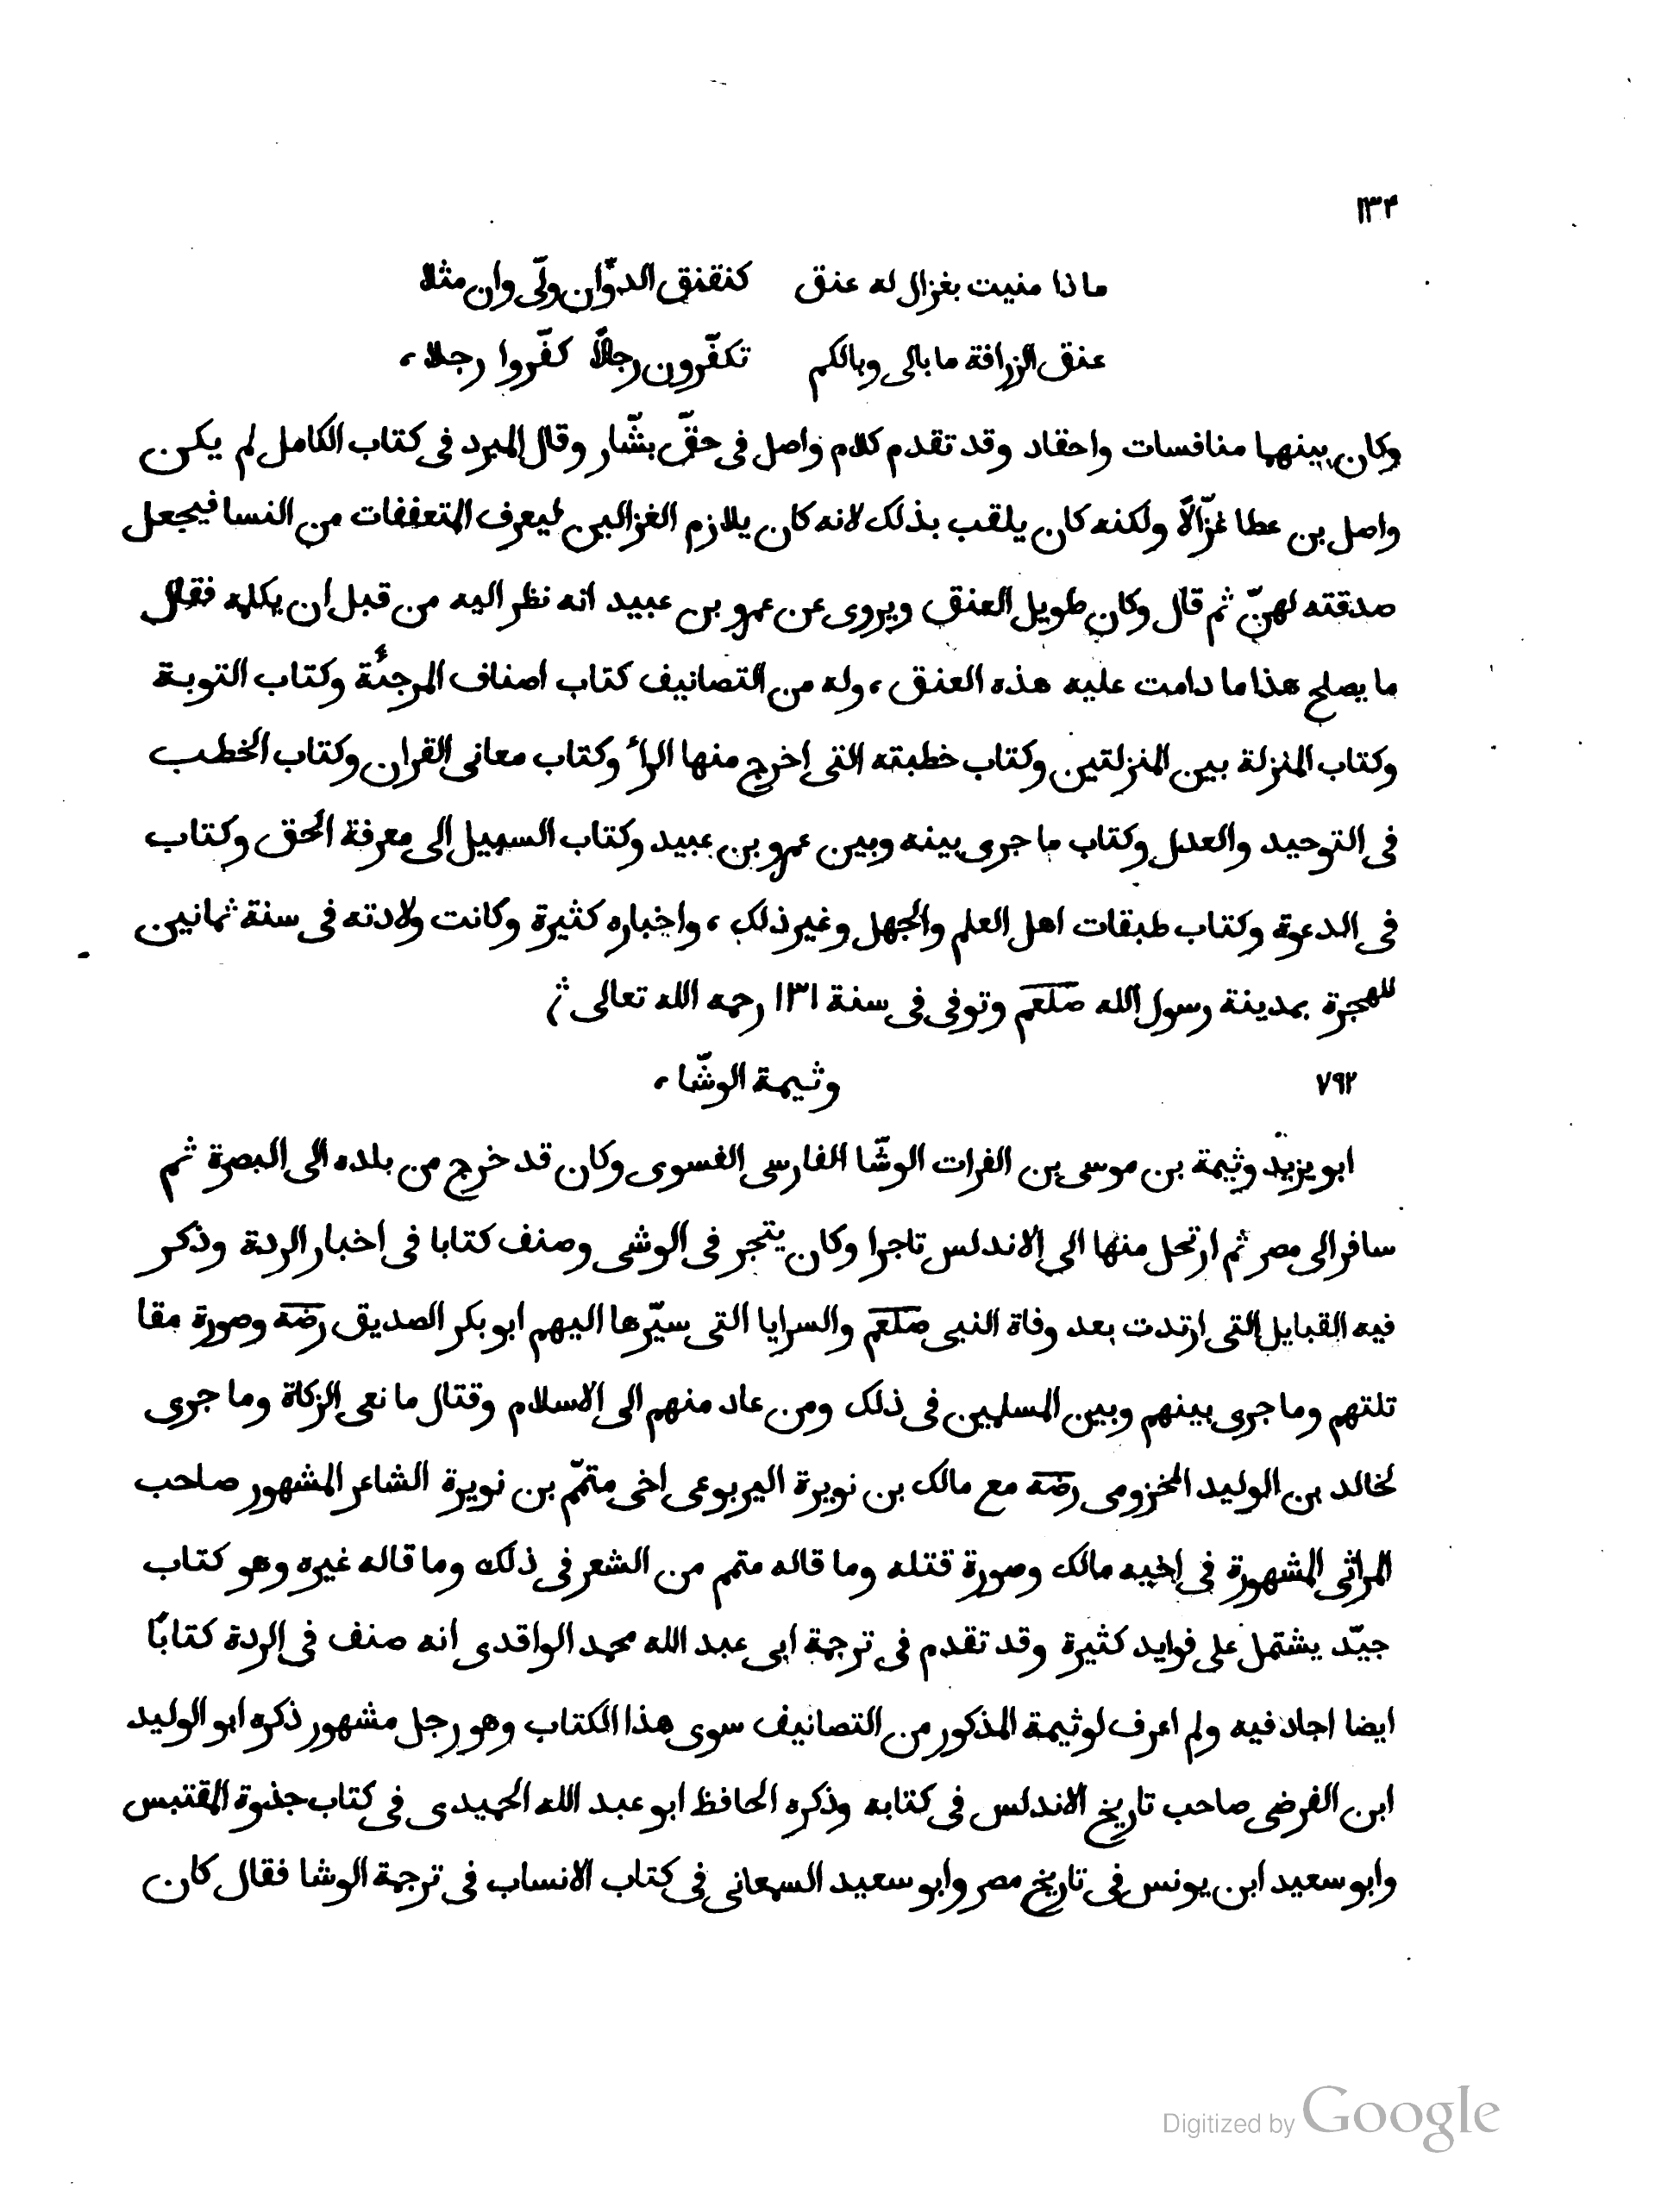 ١٣٤
ماذا منيت بغزال له عنق كنقنق الدوّان ولّى وان مثلا
عنق الزرافة ما بالى وبالكم تكفّرون رجالًا كفّروا رجلا،
وكان بينهما منافسات واحقاد وقد تقدم كلام واصل فى حقّ بشّار وقال المبرد فى كتاب الكامل لم يكن
واصل بن عطا غزّالًا ولكنه كان يلقب بذلك لانه كان يلازم الغزالين ليعرف المتعففات من النسا فيجعل
صدقته لهنّ ثم قال وكان طويل العنق ويروى عن عمرو بن عبيد انه نظر اليه من قبل ان يكلمه فقال
ما يصلح هذا ما دامت عليه هذه العنق، وله من التصانيف كتاب اصناف المرجئة وكتاب التوبة
وكتاب المنزلة بين المنزلتين وكتاب خطبته التى اخرج منها الراء وكتاب معانى القران وكتاب الخطب
فى التوحيد والعدل وكتاب ما جرى بينه وبين عمرو بن عبيد وكتاب السبيل الى معرفة الحق وكتاب
فى الدعوة وكتاب طبقات اهل العلم والجهل وغير ذلك، واخباره كثيرة وكانت ولادته فى سنة ثمانين
للهجرة بمدينة رسول الله صلعم وتوفى فى سنة ١٣١ رحمه الله تعالى
٧٩٢ وثيمة الوشّا،
ابو يزيد وثيمة بن موسى بن الفرات الوشّا الفارسى الفسوى وكان قد خرج من بلده الى البصرة ثم
سافر الى مصر ثم ارتحل منها الى الاندلس تاجرا وكان يتجر فى الوشى وصنف كتابا فى اخبار الردة وذكر
فيه القبايل التى ارتدت بعد وفاة النبى صلعم والسرايا التى سيّرها اليهم ابو بكر الصديق رضه وصورة مقا
تلتهم وما جرى بينهم وبين المسلمين فى ذلك ومن عاد منهم الى الاسلام وقتال ما نعى الزكاة وما جرى
لخالد بن الوليد المخزومى رضه مع مالك بن نويرة اليربوعى اخى متمّم بن نويرة الشاعر المشهور صاحب
المراثى المشهورة فى اخيه مالك وصورة قتله وما قاله متمم من الشعر فى ذلك وما قاله غيره وهو كتاب
جيّد يشتمل على فوايد كثيرة وقد تقدم فى ترجمة ابى عبد الله محمد الواقدى انه صنف فى الردة كتابًا
ايضا اجاد فيه ولم اعرف لوثيمة المذكور من التصانيف سوى هذا الكتاب وهو رجل مشهور ذكره ابو الوليد
ابن الفرضى صاحب تاريخ الاندلس فى كتابه وذكره الحافظ ابو عبد الله الحميدى فى كتاب جذوة المقتبس
وابو سعيد ابن يونس فى تاريخ مصر وابو سعيد السمعانى فى كتاب الانساب فى ترجمة الوشا فقال كان
Digitized by Google